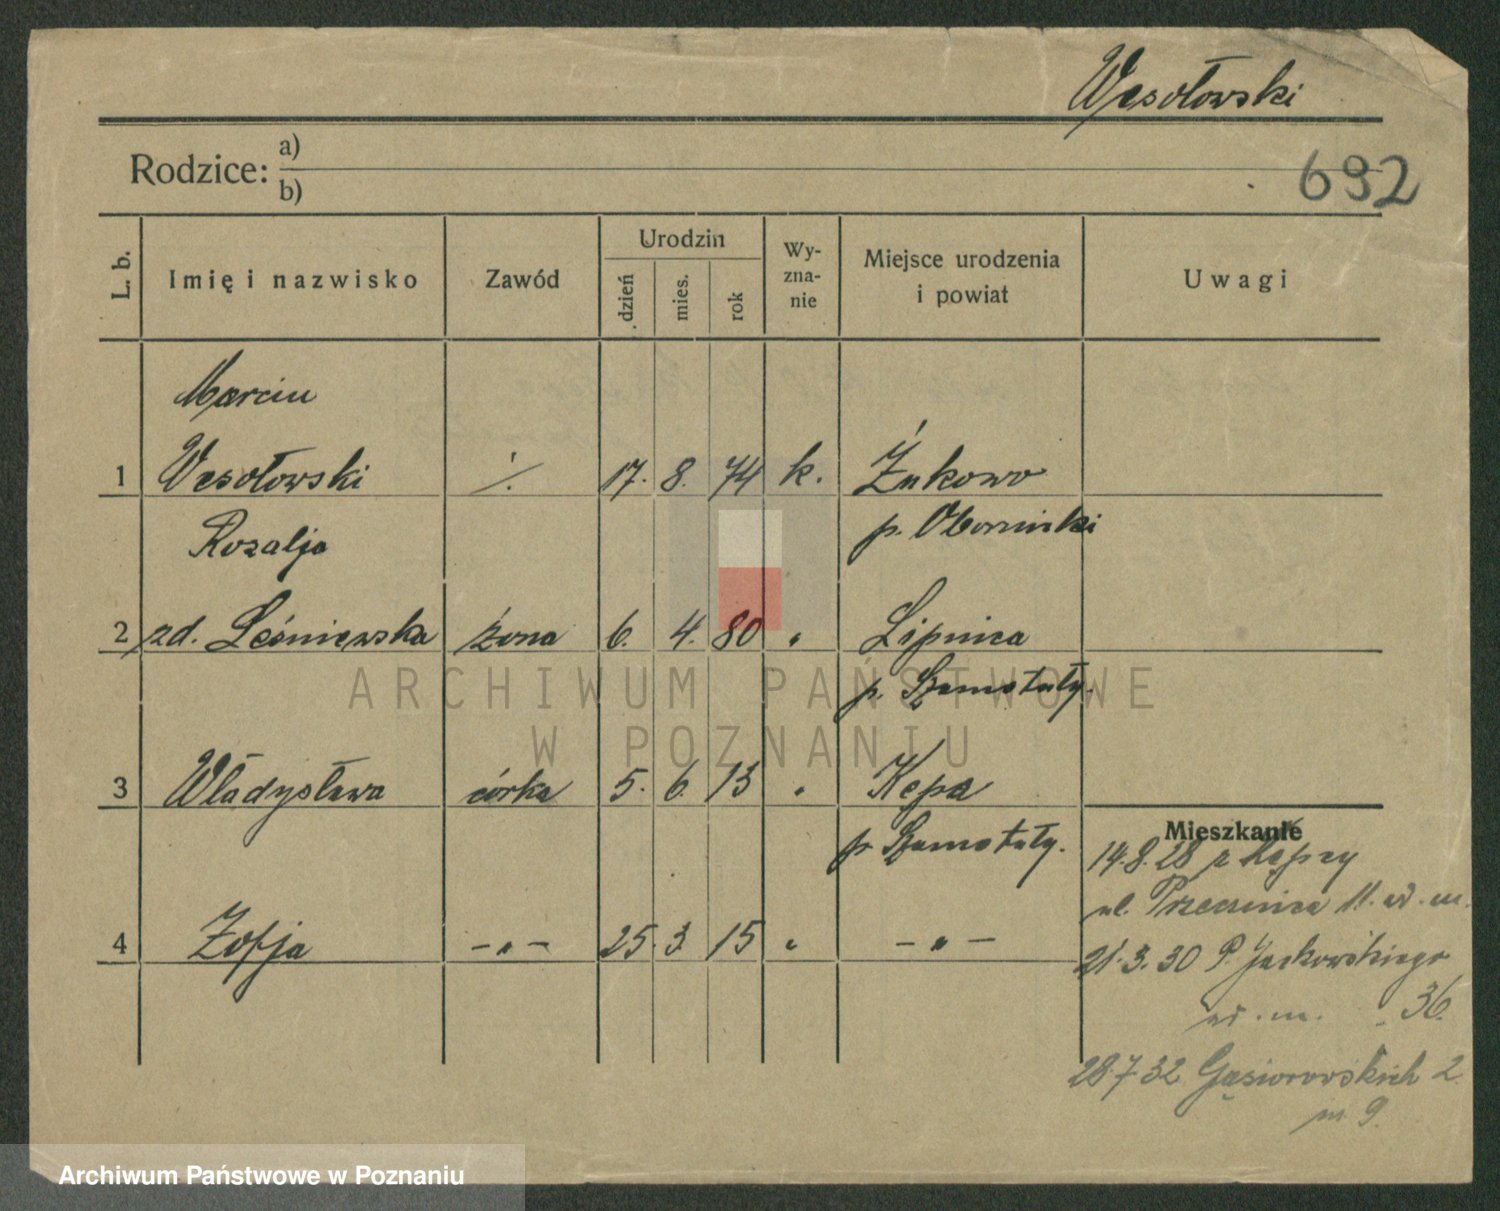 Wesołowski
Rodzice: a)
b)
692
L. b.
Imię i nazwisko
Zawód
Urodzin
dzień
mies.
rok
Wy-
zna-
nie
Miejsce urodzenia
i powiat
Uwagi
Marcin
1 Wesołowski ·/. 17. 8. 74 k. Żukowo
p. Obornicki
Rozalja
2 zd. Leśniewska żona 6. 4. 80 „ Lipnica
p. Szamotuły.
3 Władysława córka 5. 6. 13 „ Kępa
p. Szamotuły.
4 Zofja —„— 25. 3. 15 „ —„—
Mieszkanie
14.8.28 z Kępy
ul. Przecznica 11.
21.3.30 P. Jackowskiego
36.
28.7.32 Gąsiorowskich 2.
m. 9.
ARCHIWUM PAŃSTWOWE
W POZNANIU
Archiwum Państwowe w Poznaniu